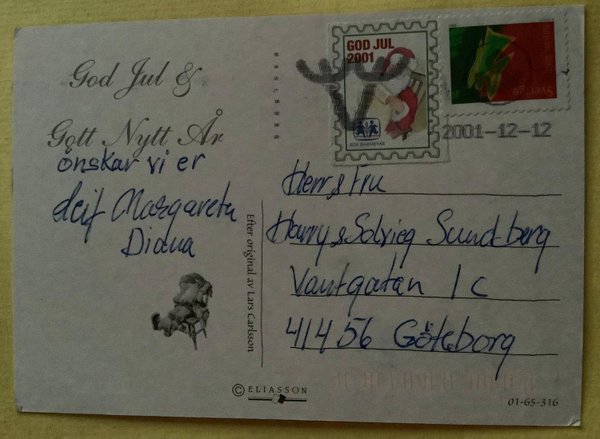 God Jul &
Gott Nytt År
önskar vi er
Leif Margareta
Diana
Efter original av Lars Carlsson
© ELIASSON
GOD JUL
2001
SOS BARNBYAR
Sverige
2001-12-12
Herr & Fru
Harry & Solvieg Sundberg
Vantgatan 1c
41456 Göteborg
01-65-316